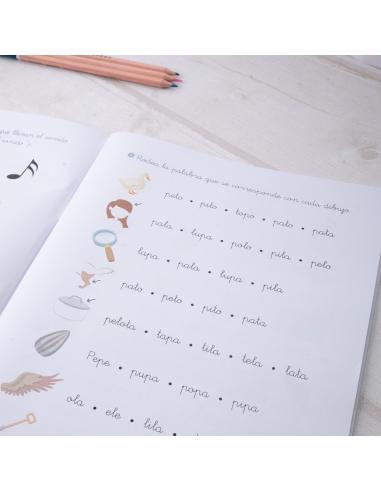 que llevan el sonido
sonido
Rodea la palabra que se corresponde con cada dibujo
peto • pito • topo • pato • pata
pala • lupa • polo • pila • pelo
lapa • pala • lupa • pila
pato • pelo • pito • pata
pelota • tapa • tila • tela • lata
Pepe • pupa • popa • pipa
ola • ele • lila •